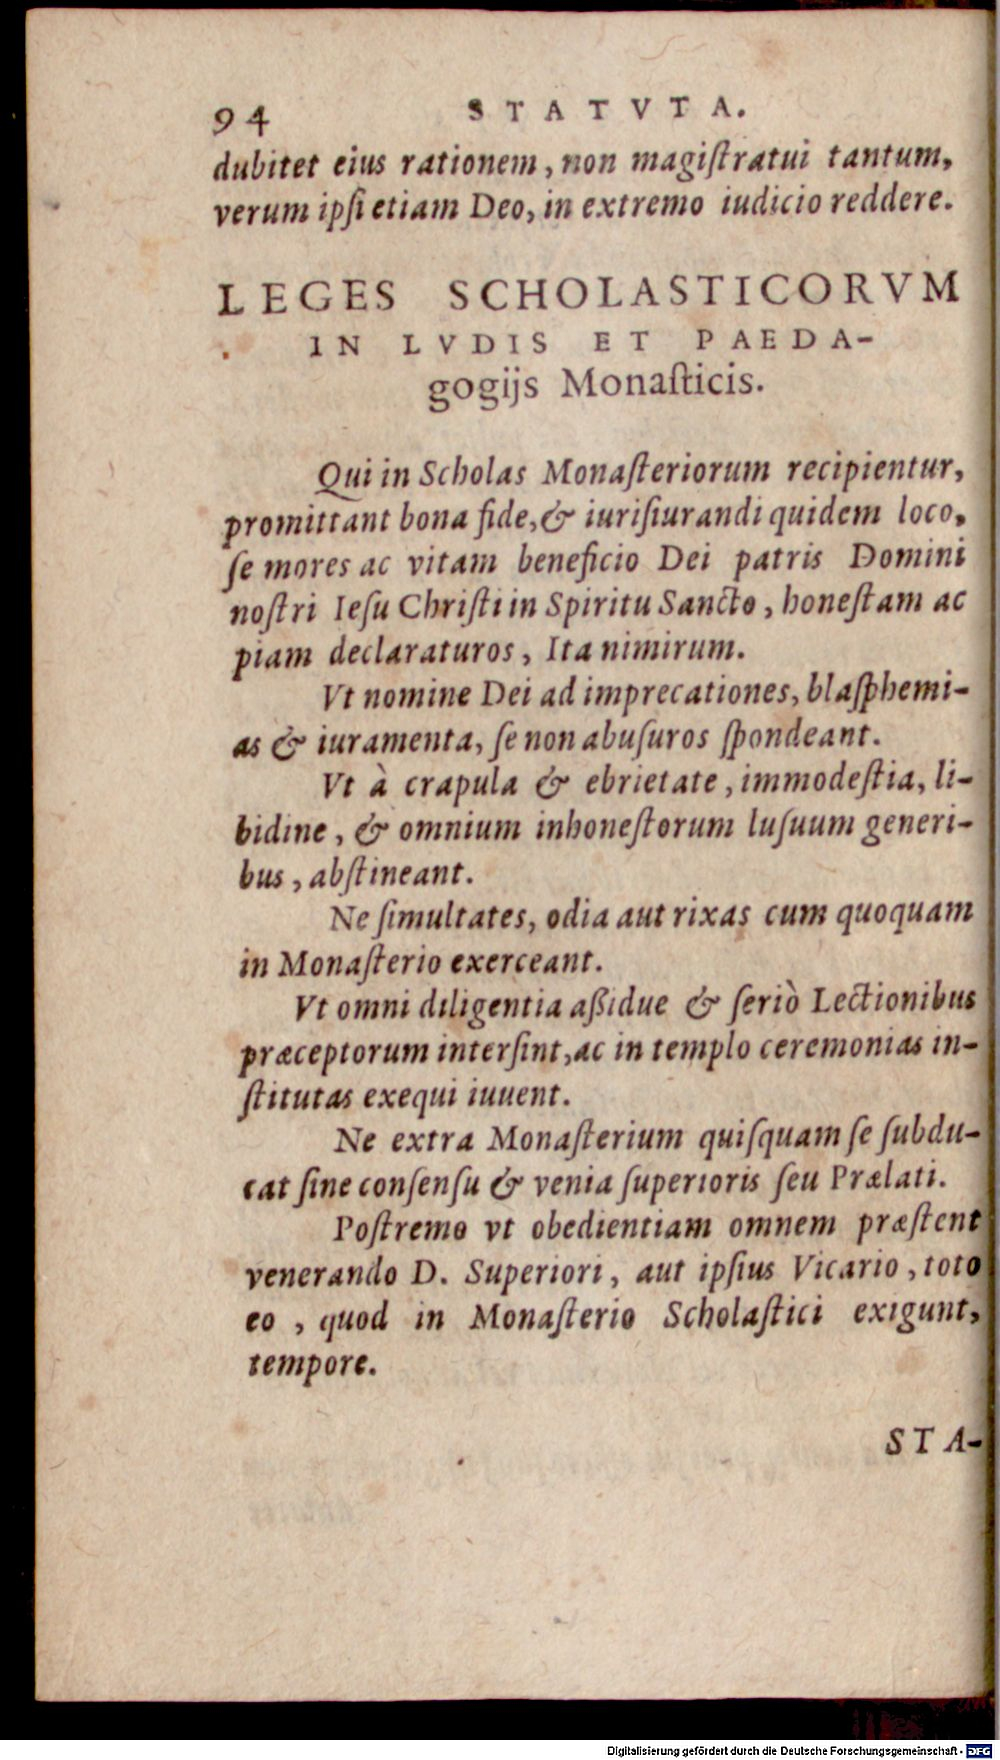 94 STATVTA.
dubitet eius rationem, non magiſtratui tantum,
verum ipſi etiam Deo, in extremo iudicio reddere.
LEGES SCHOLASTICORVM
IN LVDIS ET PAEDA-
gogijs Monaſticis.
Qui in Scholas Monaſteriorum recipientur,
promittant bona fide, & iuriſiurandi quidem loco,
ſe mores ac vitam beneficio Dei patris Domini
noſtri Ieſu Chriſti in Spiritu Sancto, honeſtam ac
piam declaraturos, Ita nimirum.
Vt nomine Dei ad imprecationes, blaſphemi-
as & iuramenta, ſe non abuſuros ſpondeant.
Vt à crapula & ebrietate, immodeſtia, li-
bidine, & omnium inhoneſtorum luſuum generi-
bus, abſtineant.
Ne ſimultates, odia aut rixas cum quoquam
in Monaſterio exerceant.
Vt omni diligentia aßidue & ſeriò Lectionibus
præceptorum interſint, ac in templo ceremonias in-
ſtitutas exequi iuuent.
Ne extra Monaſterium quiſquam ſe ſubdu-
cat ſine conſenſu & venia ſuperioris ſeu Prælati.
Poſtremo vt obedientiam omnem præſtent
venerando D. Superiori, aut ipſius Vicario, toto
eo, quod in Monaſterio Scholaſtici exigunt,
tempore.
STA-
Digitalisierung gefördert durch die Deutsche Forschungsgemeinschaft - DFG